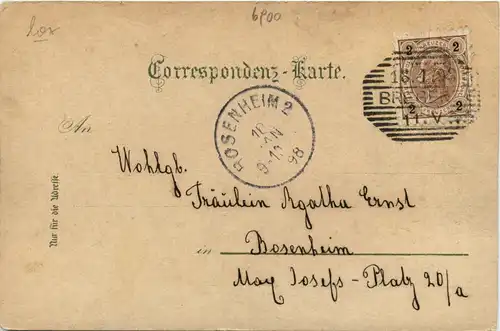 6900
Correspondenz-Karte.
2 2
2 2
ROSENHEIM 2
JAN
98
11.V.
An
Wohlgb.
Fräulein Agatha Ernst
in Rosenheim
Max Josefs-Platz 20/a
Nur für die Adresse